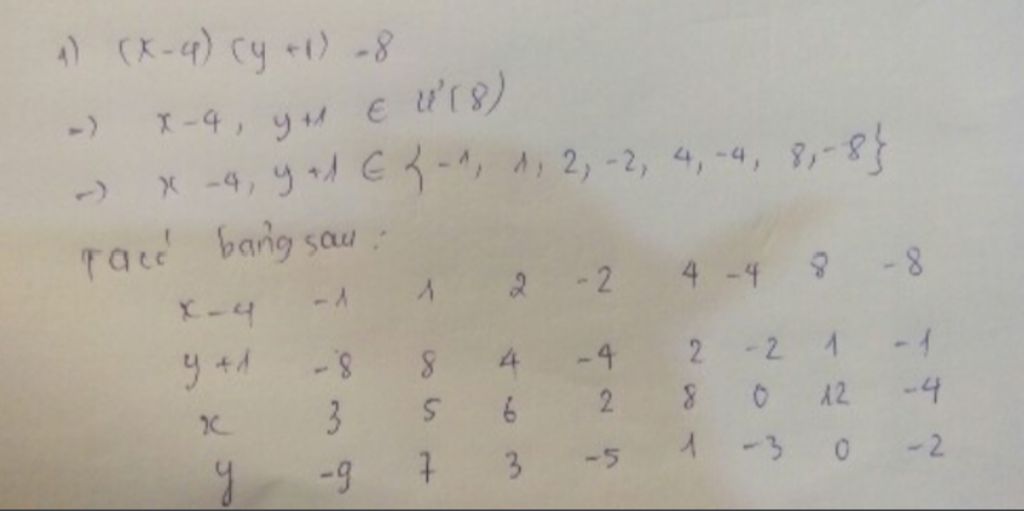 1) (x-4) (y+1) -8
=) x-4, y+1 ∈ Ư(8)
=) x -4, y+1 ∈ {-1, 1, 2, -2, 4, -4, 8, -8}
Ta có bảng sau:
x-4 -1 1 2 -2 4 -4 8 -8
y+1 -8 8 4 -4 2 -2 1 -1
x 3 5 6 2 8 0 12 -4
y -9 7 3 -5 1 -3 0 -2